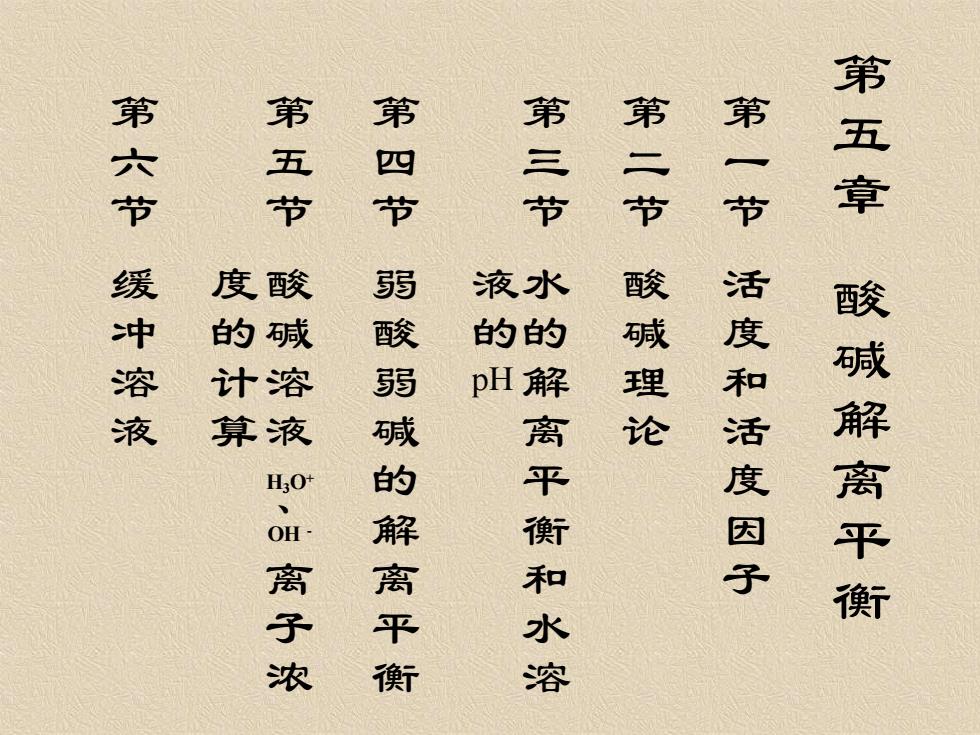 第五章 酸碱解离平衡
第一节 活度和活度因子
第二节 酸碱理论
第三节 水的解离平衡和水溶
液的pH
第四节 弱酸弱碱的解离平衡
第五节 酸碱溶液H₃O⁺、OH⁻离子浓
度的计算
第六节 缓冲溶液